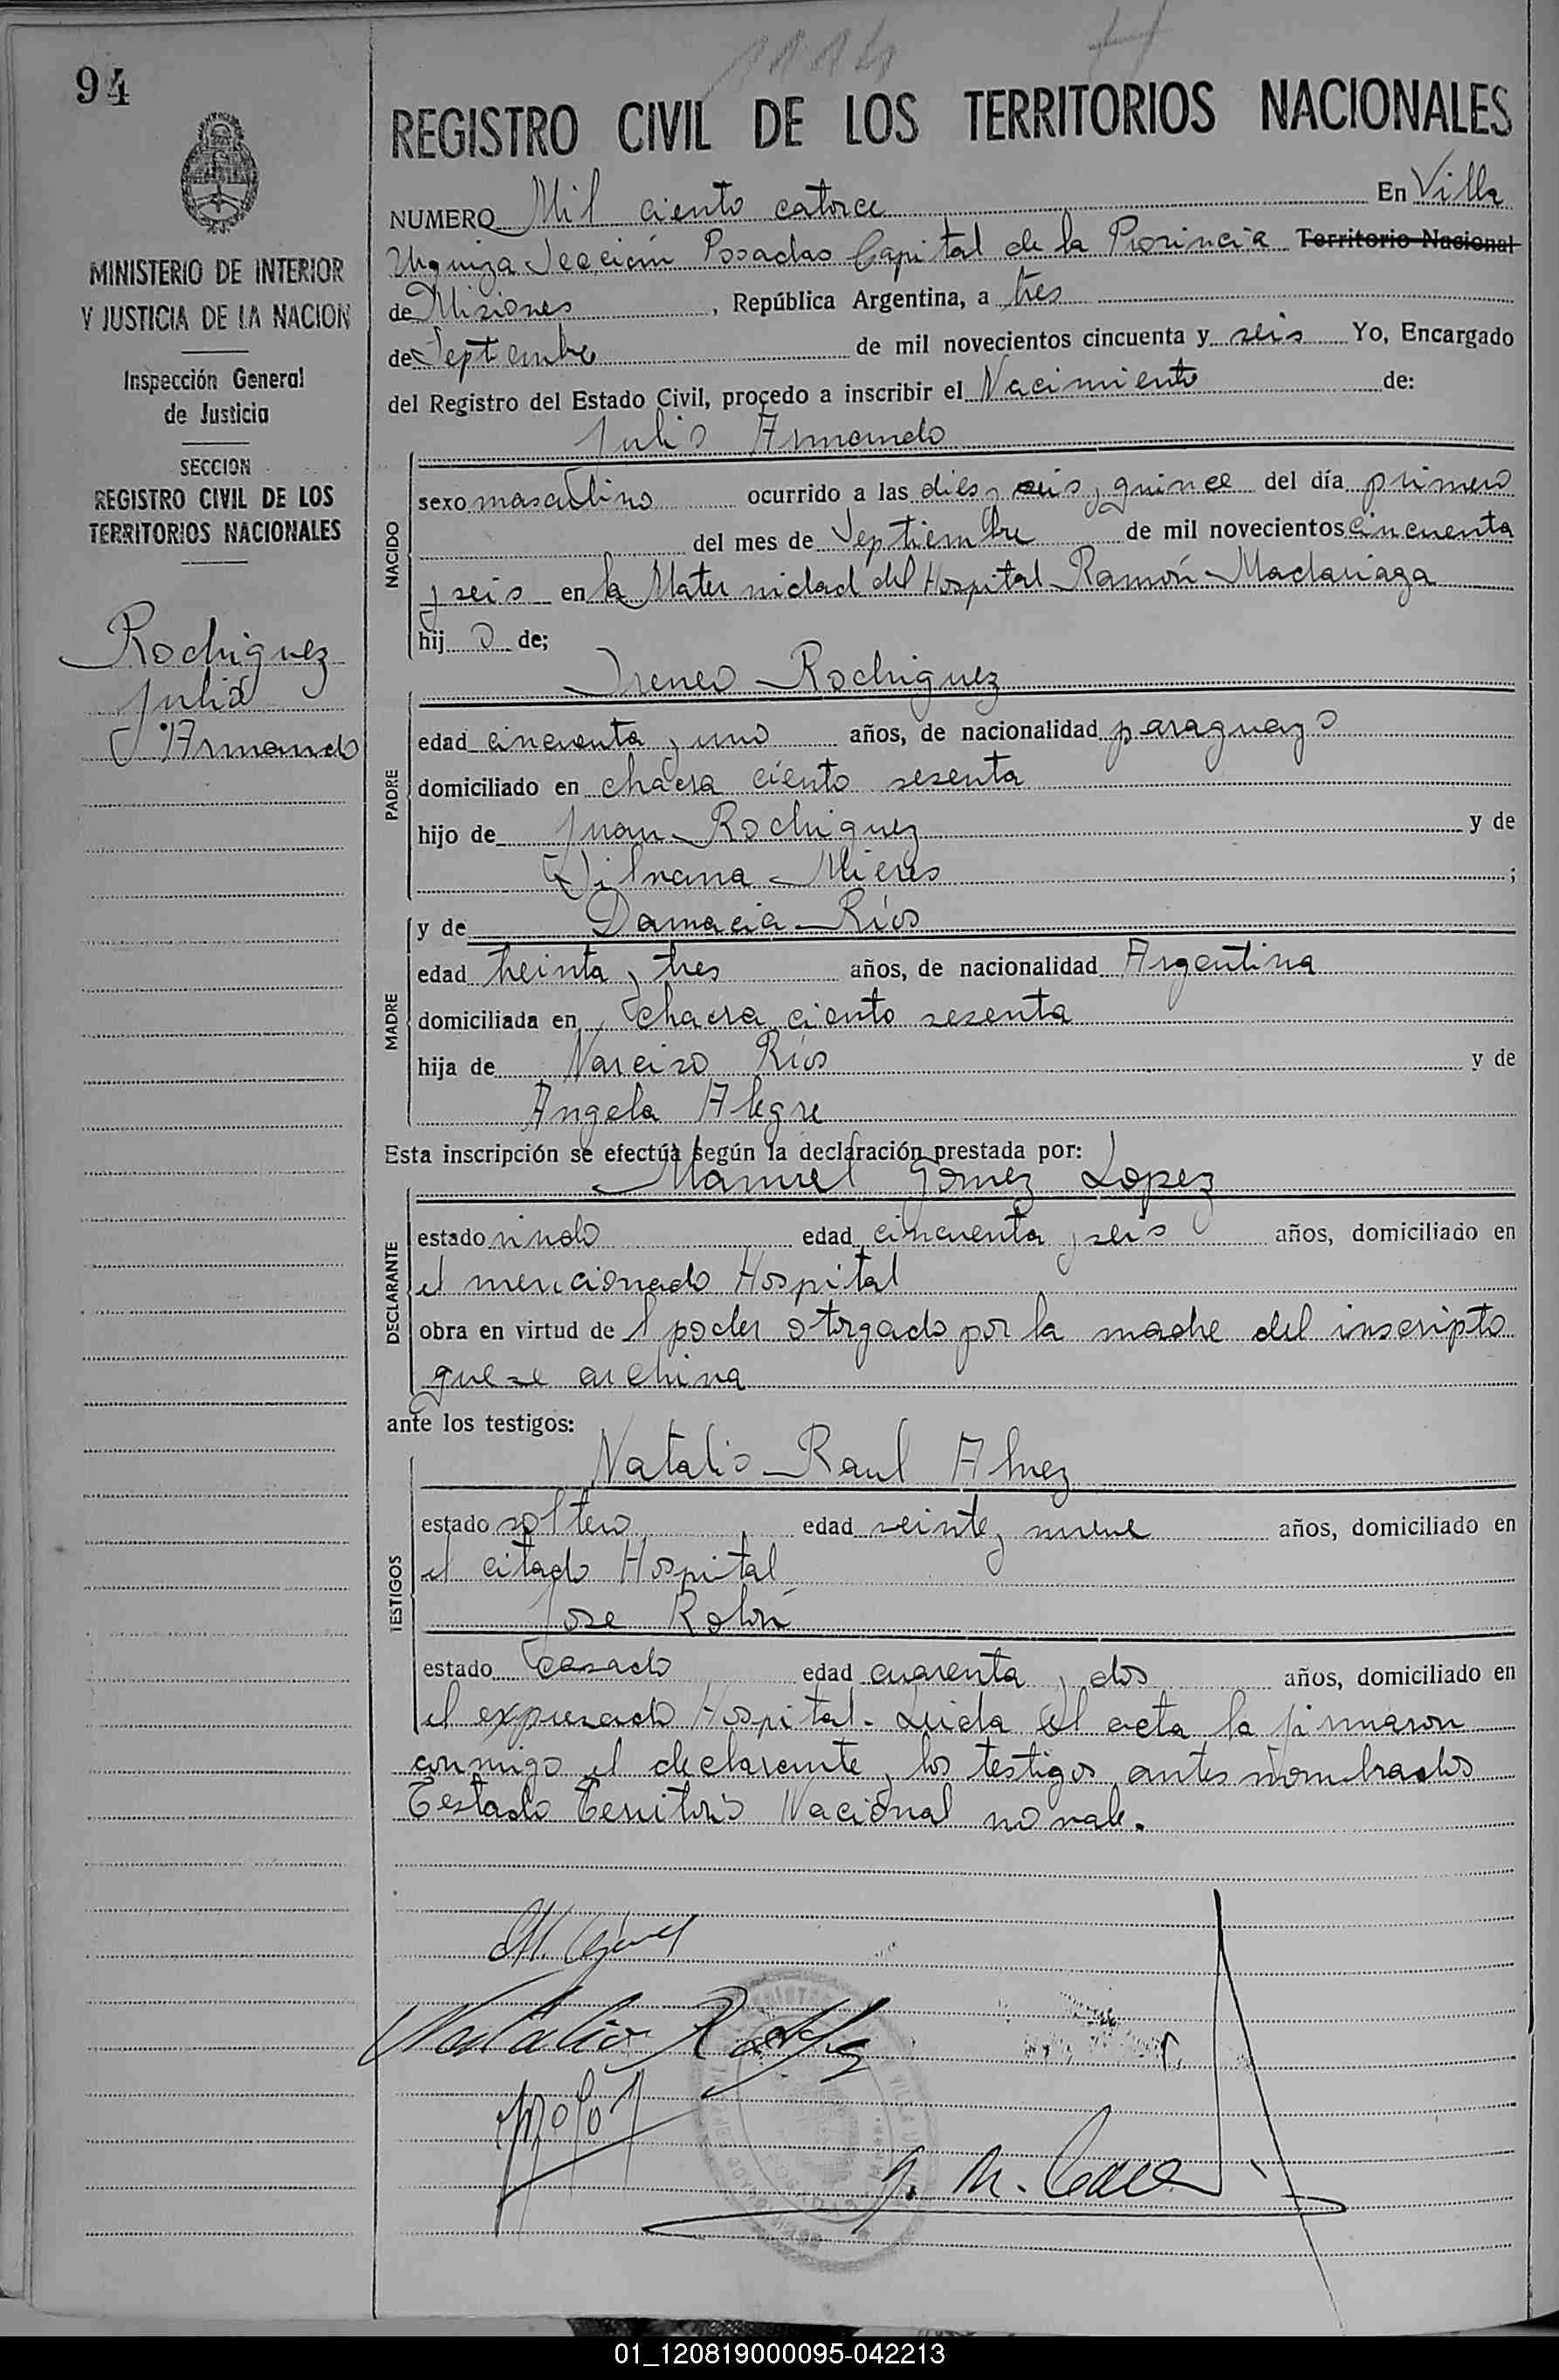 1114
94
REGISTRO CIVIL DE LOS TERRITORIOS NACIONALES
MINISTERIO DE INTERIOR
Y JUSTICIA DE LA NACION
Inspección General
de Justicia
SECCION
REGISTRO CIVIL DE LOS
TERRITORIOS NACIONALES
Rodriguez
Julio
Armando
NUMERO Mil ciento catorce En Villa
Urquiza Sección Posadas Capital de la Provincia Territorio Nacional
de Misiones, República Argentina, a tres
de Septiembre de mil novecientos cincuenta y seis Yo, Encargado
del Registro del Estado Civil, procedo a inscribir el Nacimiento de:
Julio Armando
NACIDO
sexo masculino ocurrido a las dies y seis y quince del día primero
del mes de Septiembre de mil novecientos cincuenta
y seis en la Maternidad del Hospital Ramón Madariaga
hij o de;
Ireneo Rodriguez
PADRE
edad cincuenta y uno años, de nacionalidad paraguayo
domiciliado en chacra ciento sesenta
hijo de Juan Rodriguez y de
Silvana Mieres ;
y de Damacia Ríos
MADRE
edad treinta y tres años, de nacionalidad Argentina
domiciliada en chacra ciento sesenta
hija de Narciso Ríos y de
Angela Alegre
Esta inscripción se efectúa según la declaración prestada por:
Manuel Gomez Lopez
DECLARANTE
estado viudo edad cincuenta y seis años, domiciliado en
el mencionado Hospital
obra en virtud de l poder otorgado por la madre del inscripto
que se archiva
ante los testigos:
Natalio Raul Alvez
TESTIGOS
estado soltero edad veinte y nueve años, domiciliado en
el citado Hospital
Jose Rolón
estado casado edad cuarenta y dos años, domiciliado en
el expresado Hospital. Leida el acta la firmaron
conmigo el declarante y los testigos antes nombrados
Testado Territorio Nacional no vale.
01_120819000095-042213